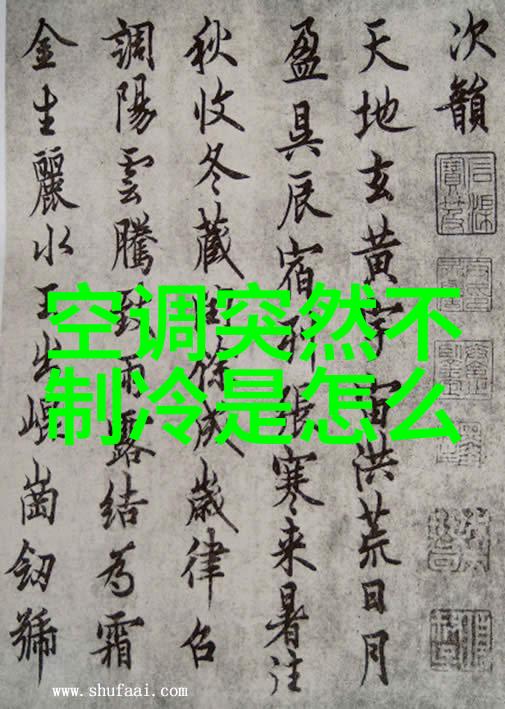 次韻
天地玄黃宇宙洪荒日月
盈昃辰宿列張寒來暑往
秋收冬藏閏餘成歲律召
調陽雲騰致雨露結為霜
金生麗水玉出崑崗劒號
空调突然不
制冷是怎么
www.shufaai.com